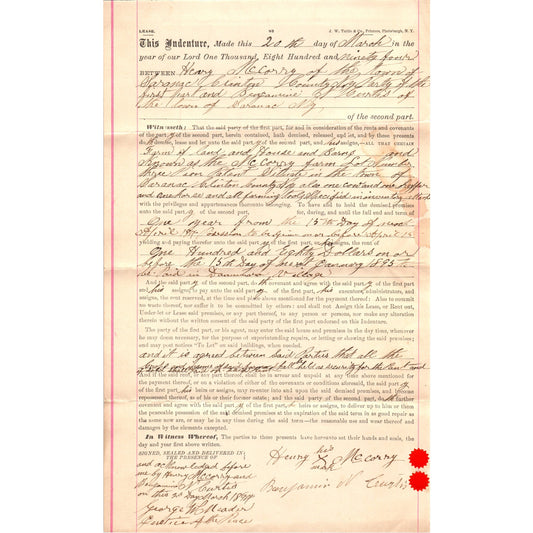 LEASE. 93 J. W. Tuttle & Co., Printers, Plattsburgh, N. Y.
This Indenture, Made this 20th day of March in the
year of our Lord One Thousand, Eight Hundred and ninety four
BETWEEN Henry McCorry of the town of
Saranac Clinton County Party of the
first part and Benjamine N Curtis of
the town of Saranac Ny,
of the second part.
Witnesseth: That the said party of the first part, for and in consideration of the rents and covenants
of the party of the second part, herein contained, hath demised, released and let, and by these presents
do demise, lease and let unto the said party of the second part, and his assigns,—ALL THAT CERTAIN
Farm of land and House and Barns and
Known as the McCorry farm Lot Number
three Patent Situate in the town of
Saranac Clinton County Ny also one cow and one heifer
and one horse and all farming tools Specified in inventory
with the privileges and appurtenances thereunto belonging. To have and to hold the demised premises
unto the said party of the second part for, during, and until the full end and term of
One year from the 15th Day of next
April or before April 15
yielding and paying therefor unto the said party of the first part, the rent of
One Hundred and Eighty Dollars on or
before the 15th Day of next January 1895 to
be paid in Village
And the said party of the second part, doth covenant and agree with the said party of the first part
and his assigns, to pay unto the said party of the first part, his executors, administrators, and
assigns, the rent reserved, at the time and place above mentioned for the payment thereof: Also to commit
no waste thereof, nor suffer it to be committed by others: and shall not Assign this Lease, or Rent out,
Under-let or Lease said premises, or any part thereof, to any person or persons, nor make any alteration
without the written consent of the said party of the first part endorsed on this Indenture.
The party of the first part, or his agent, may enter the house and premises in the day time, whenever
he may deem necessary, for the purpose of superintending repairs, or letting or showing the said premises;
and may post notices "To Let" on said buildings, when needed.
and it is agreed between Said Parties that all the
shall be held as security for the Rent and
And if the said rent, or any part thereof, shall be in arrears and unpaid at any time above mentioned for
the payment thereof, or on a violation of either of the covenants or conditions aforesaid, the said party
of the first part his heirs or assigns, may re-enter into and upon the said demised premises, and become
repossessed thereof, as of his or their former estate; and the said party of the second part, doth further
covenant and agree with the said party of the first part, his heirs or assigns, to deliver up to him or them
the peaceable possession of the said demised premises at the expiration of the said term in as good repair as
the same now are, or may be in at any time during the said term—the reasonable use and wear thereof and
damages by the elements excepted.
In Witness Whereof, The parties to these presents have hereunto set their hands and seals, the
day and year first above written.
SIGNED, SEALED AND DELIVERED IN
THE PRESENCE OF
Henry his X mark McCorry
Benjamin N Curtis
and acknowledged before
me by Henry McCorry and
Benjamin N Curtis
on this 20 Day March 1894
George W Meader
Justice of the Peace